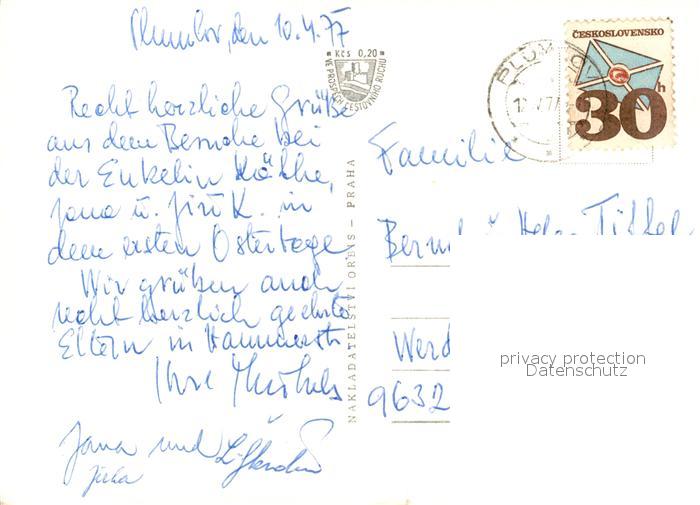 Plumlov, den 10.4.77
Kčs 0,20
VE PROSPĚCH CESTOVNÍHO RUCHU
ČESKOSLOVENSKO
30 h
PLUML
Recht herzliche Grüße
aus dem Besuche bei
der Enkelin Käthe,
Jana u. Jiří K. in
dem ersten Ostertage
Wir grüßen auch
recht herzlich geehrte
Eltern in
Ihre
Jana und
Jirka
NAKLADATELSTVÍ ORBIS – PRAHA
Familie
Werd
9632
privacy protection
Datenschutz